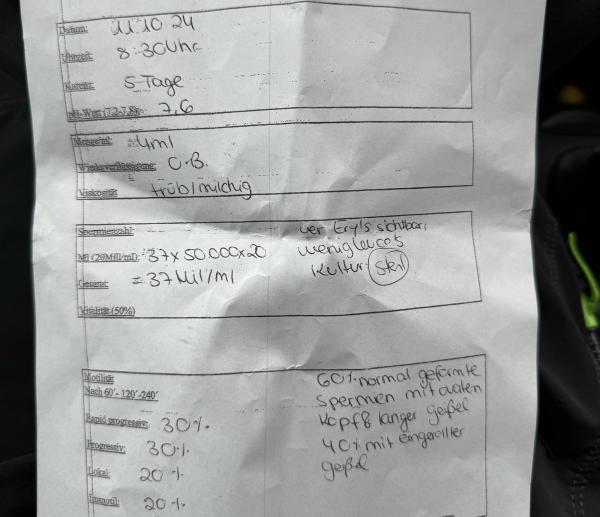 Datum: 11.10.24
Uhrzeit: 8:30 Uhr
Karenz: 5 Tage
pH-Wert (7,2-7,8): 7,6
Menge/ml: 4ml
Wiederverflüssigung: O.B.
Viskosität trüb/milchig
Spermienzahl: ver Erys sichtbar,
Ml (20Mill/ml): 37 x 50.000 x 20 wenig leucos
Gesamt: = 37 Mil/ml Kultur: steril
Vitalität (50%)
Motilität 60% normal geformte
Nach 60'- 120'-240' Spermien mit ovalen
Rapid progressiv: 30% Kopf & langer geißel
Progressiv: 30% 40% mit eingerollter
Lokal: 20% geißel
Immotil: 20%